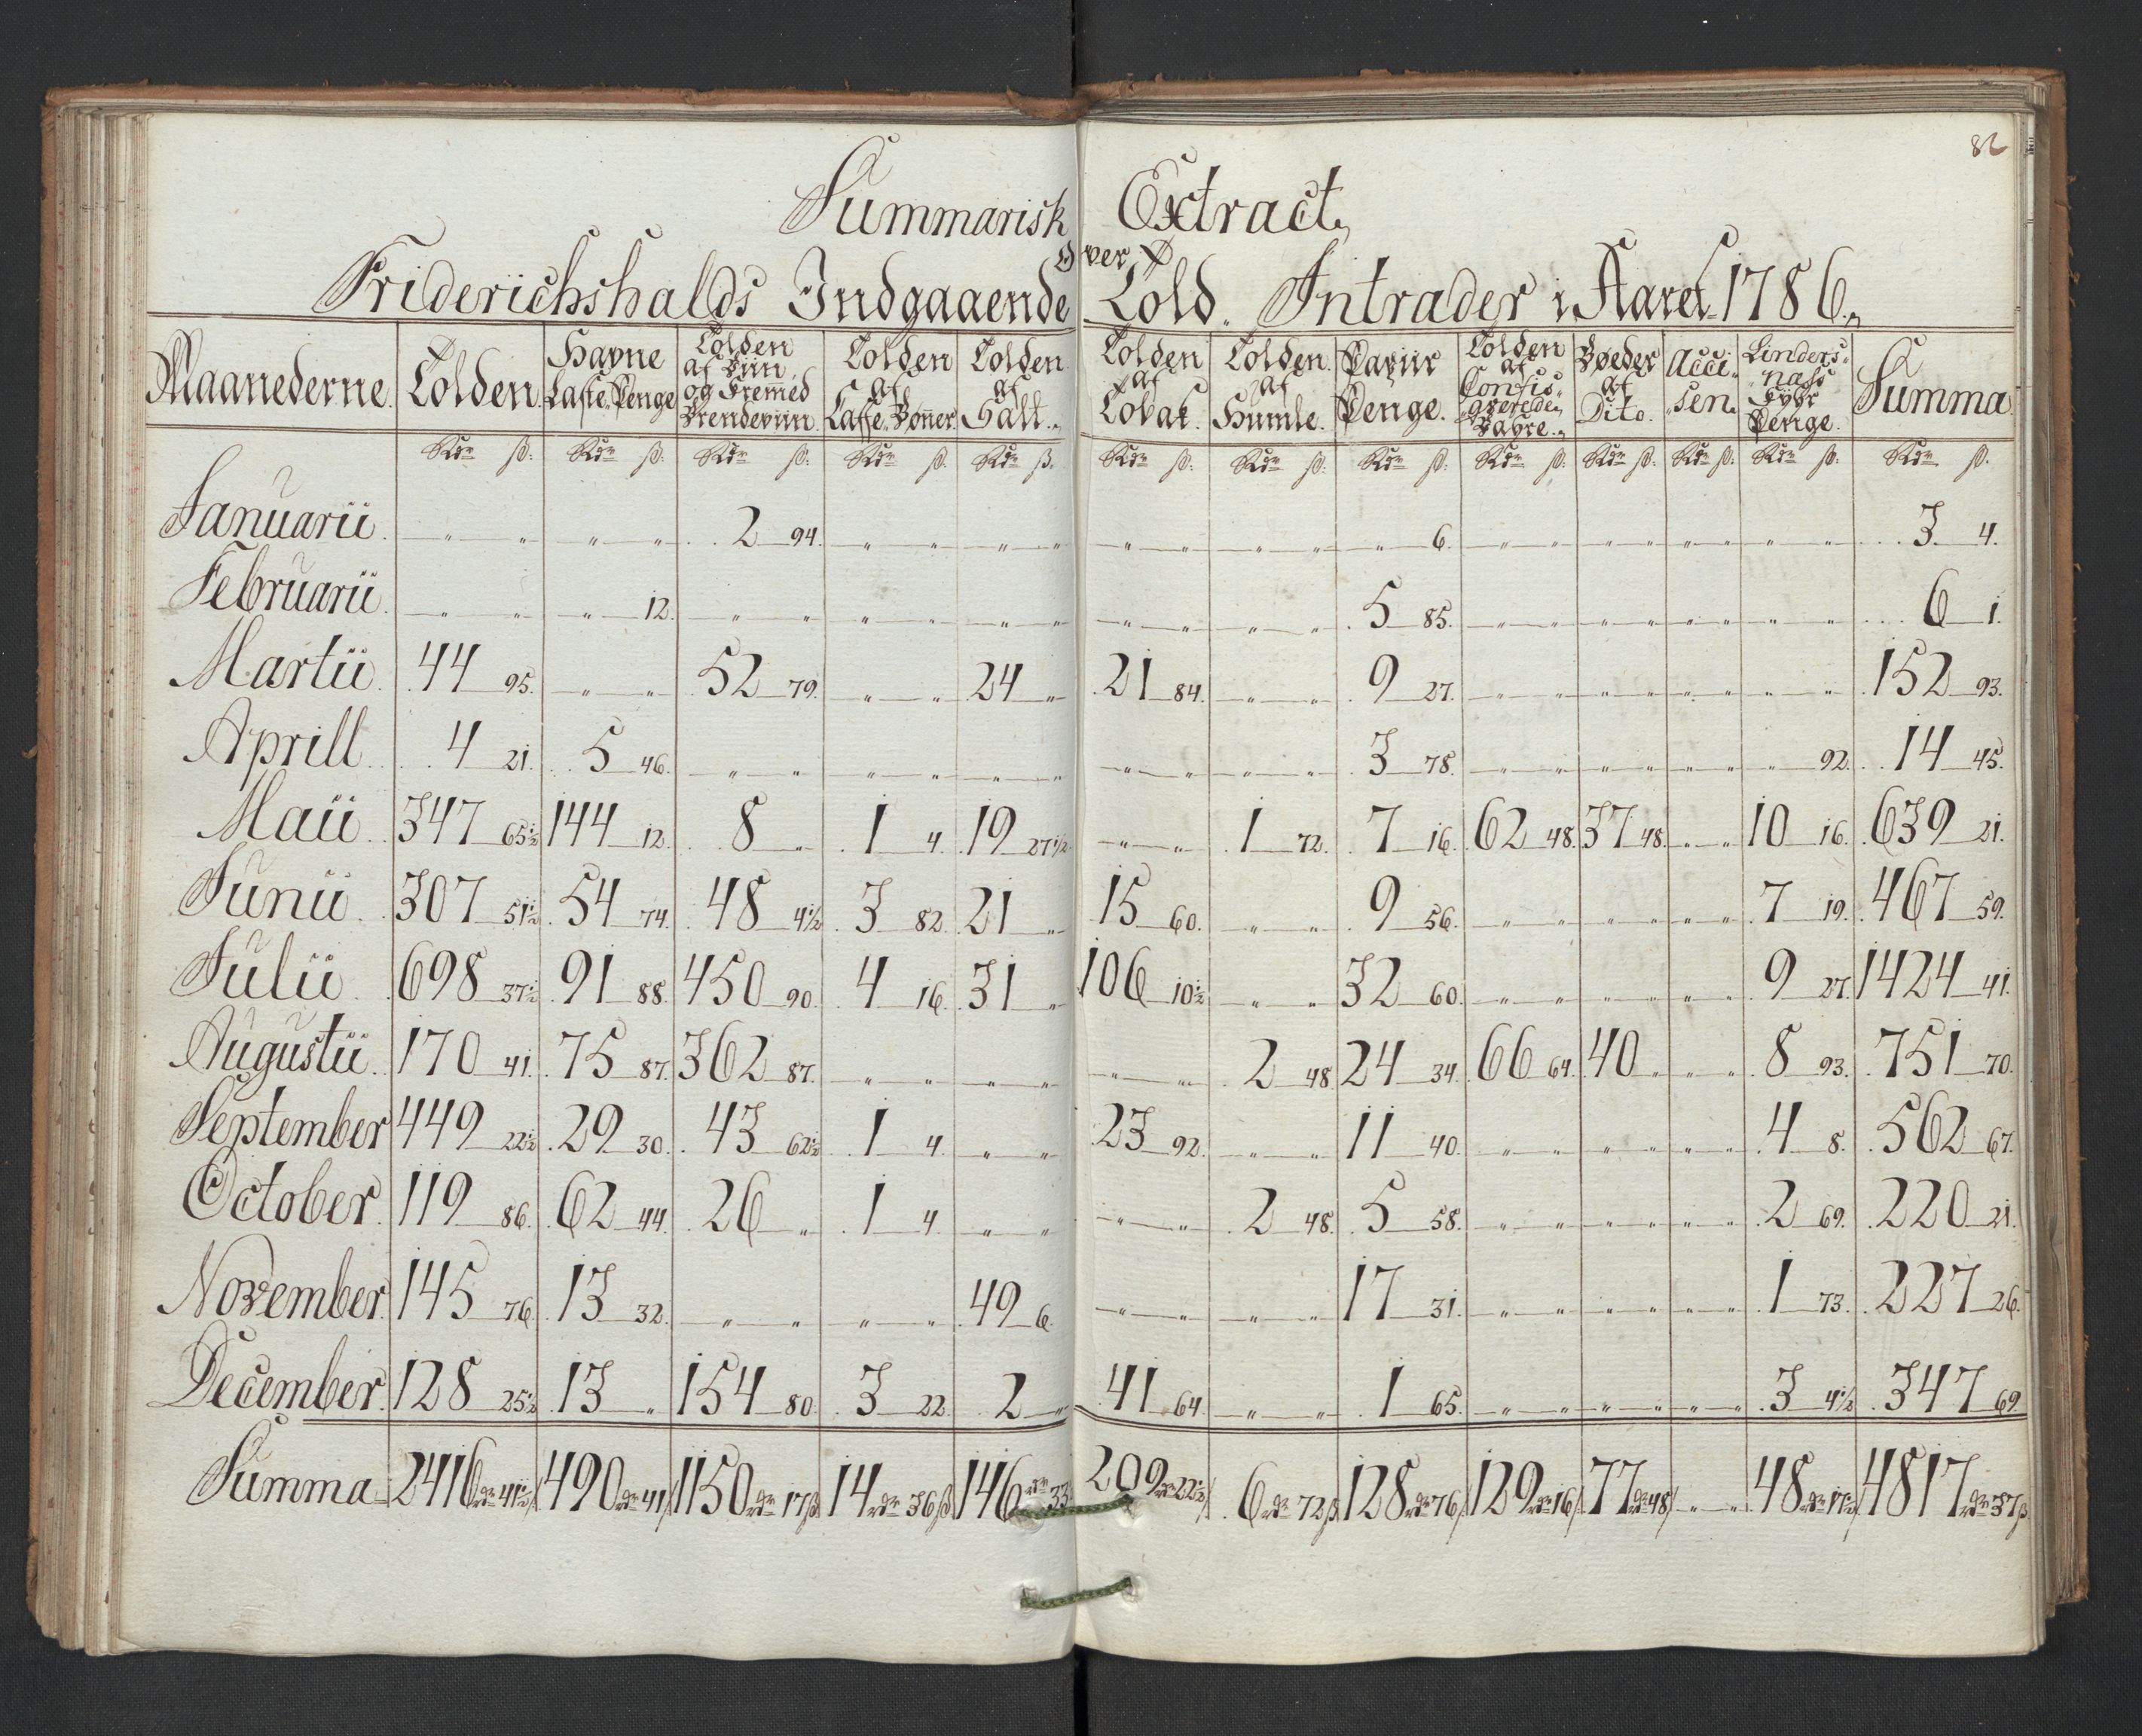 82
Summarisk Extract,
Over
Friderichshalds Indgaaende Told Intrader i Aaret 1786.
Maanederne. | Tolden. | Havne Laste Penge | Tolden af Viin, og Fremmed Brendeviin. | Tolden af Caffe Bønner. | Tolden af Salt. | Tolden af Tobak. | Tolden af Humle. | Papiir Penge. | Tolden af Confisqverede Vahre. | Bøeder af Dito. | Acci-sen. | Linders-næss Fyhr Penge. | Summa
Rdr ß. | Rdr ß. | Rdr ß. | Rdr ß. | Rdr ß. | Rdr ß. | Rdr ß. | Rdr ß. | Rdr ß. | Rdr ß. | Rdr ß. | Rdr ß. | Rdr ß.
Januarii. | " " | " " | 2 94. | " " | " " | " " | " " | " 6. | " " | " " | " " | " " | 3 4.
Februarii. | " " | " 12. | " " | " " | " " | " " | " " | 5 85. | " " | " " | " " | " " | 6 1.
Martii. | 44 95. | " " | 52 79. | " " | 24 " | 21 84. | " " | 9 27. | " " | " " | " " | " " | 152 93.
Aprill | 4 21. | 5 46. | " " | " " | " " | " " | " " | 3 78. | " " | " " | " " | " 92. | 14 45.
Maii | 347 65½ | 144 12. | 8 " | 1 4. | 19 27½ | " " | 1 72. | 7 16. | 62 48. | 37 48. | " " | 10 16. | 639 21.
Junii | 307 51½ | 54 74. | 48 4½ | 3 82. | 21 " | 15 60. | " " | 9 56. | " " | " " | " " | 7 19. | 467 59.
Julii | 698 37½ | 91 88. | 450 90. | 4 16. | 31 " | 106 10½ | " " | 32 60. | " " | " " | " " | 9 27. | 1424 41.
Augustii. | 170 41. | 75 87. | 362 87. | " " | " " | " " | 2 48. | 24 34. | 66 64. | 40 " | " " | 8 93. | 751 70.
September | 449 22½ | 29 30. | 43 62½ | 1 4. | " " | 23 92. | " " | 11 40. | " " | " " | " " | 4 8. | 562 67.
October. | 119 86. | 62 44. | 26 " | 1 4. | " " | " " | 2 48. | 5 58. | " " | " " | " " | 2 69. | 220 21.
November. | 145 76. | 13 32. | " " | " " | 49 6. | " " | " " | 17 31. | " " | " " | " " | 1 73. | 227 26.
December. | 128 25½ | 13 " | 154 80. | 3 22. | 2 " | 41 64. | " " | 1 65. | " " | " " | " " | 3 4½ | 347 69.
Summa | 2416 rdr 41½ ß | 490 rdr 41 ß | 1150 rdr 17 ß | 14 rdr 36 ß | 146 rdr 33 | 209 rdr 22½ ß | 6 rdr 72 ß | 128 rdr 76 ß | 129 rdr 16 ß | 77 rdr 48 ß | " " | 48 rdr 17½ ß | 4817 rdr 37 ß